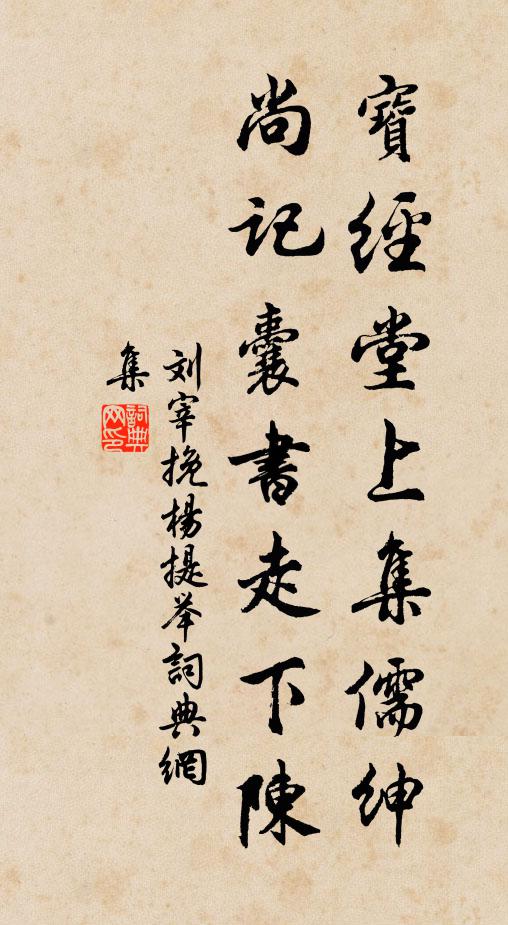 寶經堂上集儒紳
尚記囊書走下陳
刘宰挽楊提举詞典網
集
詞典网印